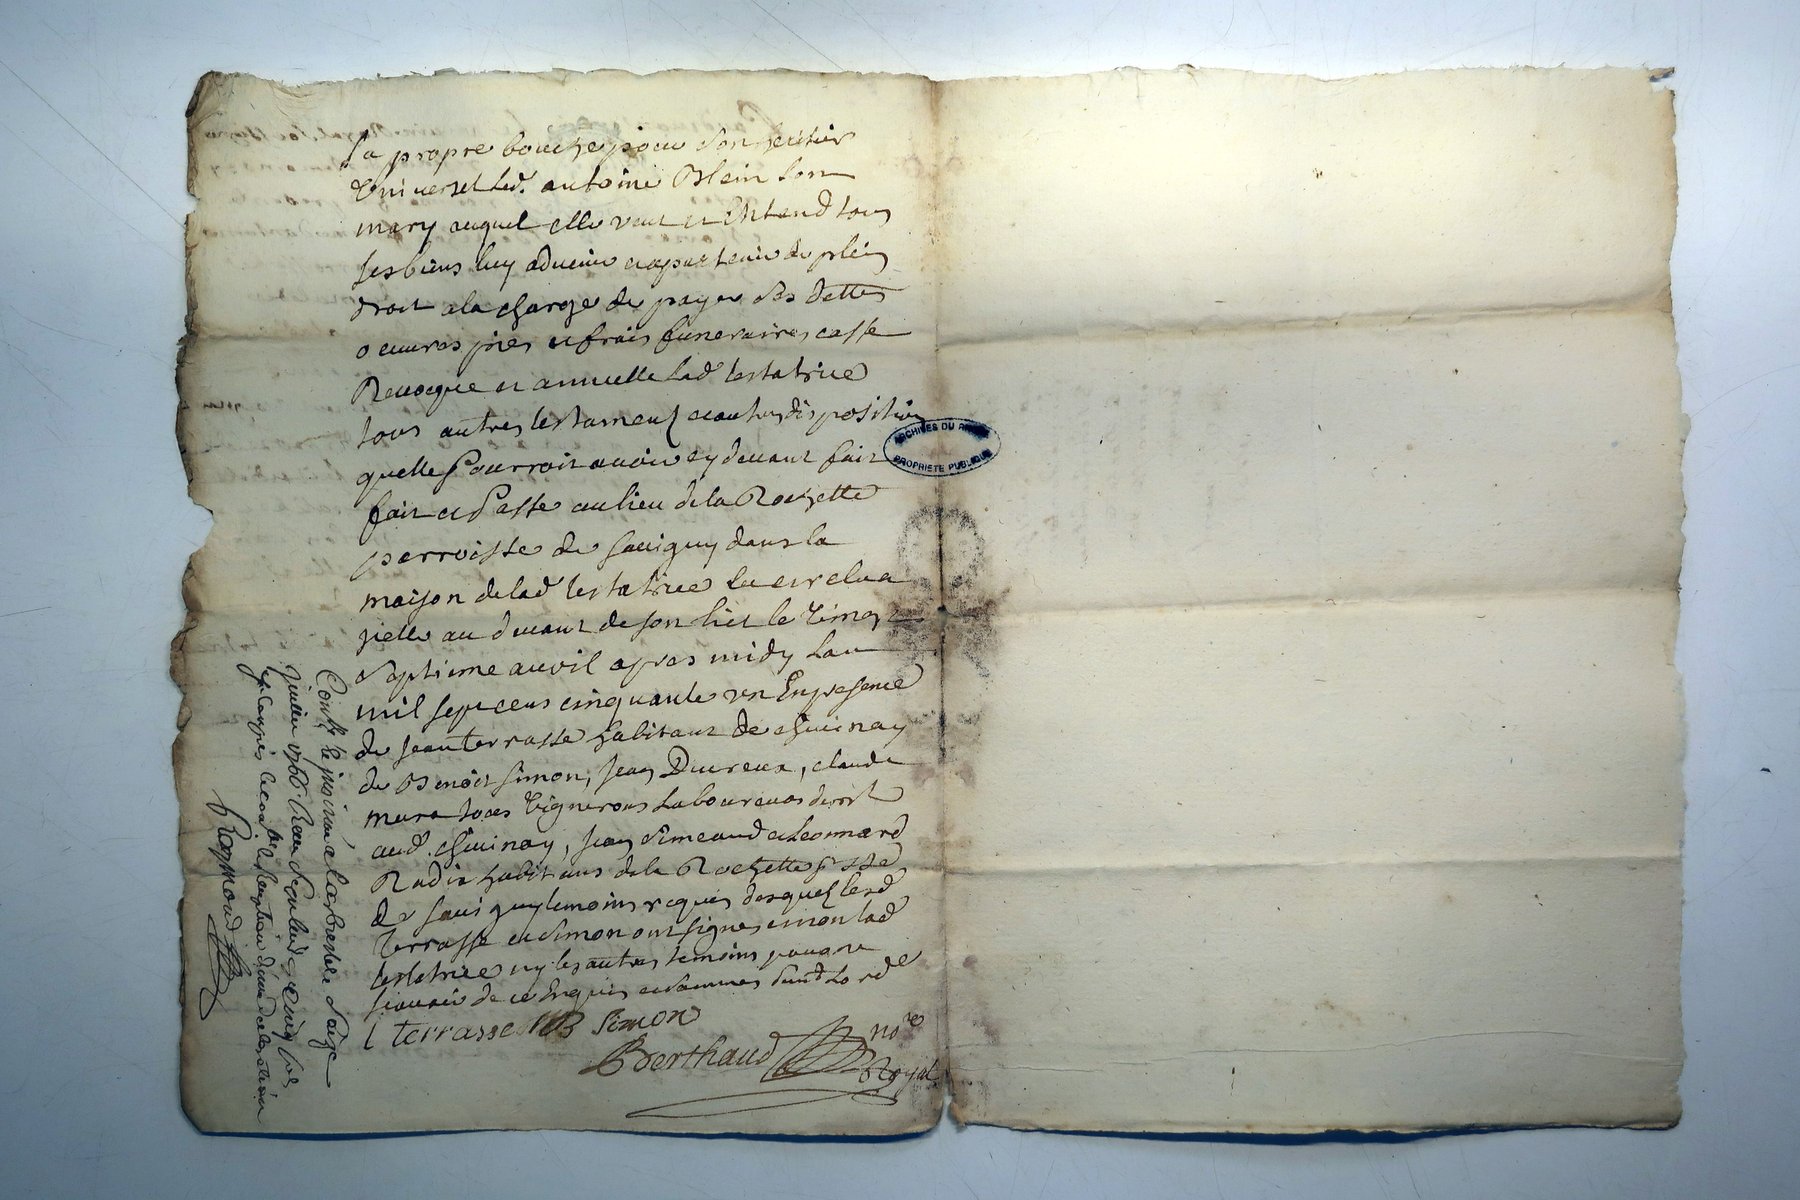 sa propre bouche pour son heritier
Universel lad. antoine Blein son
mary auquel elle veut et Entend tous
ses biens luy advenir et apartenir de plein
droit a la charge de payer ses dettes
oeuvres pies et frais funeraires, casse
Revocque et annulle lad testatrice
tous autres testament et autres disposition
quelle Pourroit avoir cy devant fait
fait et Passe au lieu de la Rochette
parroisse de savigny dans la
maison de lad testatrice
au devant de son lict le Vingt
septieme avril apres midy lan
mil sept cens cinquante un En presence
de Jean terrasse habitant de chuinay
de Benoist simon, Jean Ducreux, claude
mura tous Vignerons Laboureurs
aud. chuinay, Jean Simeaud et Leonnard
Radix habitans de la Rochette psse
de savigny temoins requis desquels lesd
terrasse et simon ont signes et non lad
testatrice ny les autres temoins pour ne
scavoir de ce Enquis et sommes
J terrasse B Simon
Berthaud no.re
Royal
ARCHIVES DU RHONE
PROPRIETE PUBLIQUE
Conlle le
juillet 1751
Raymond